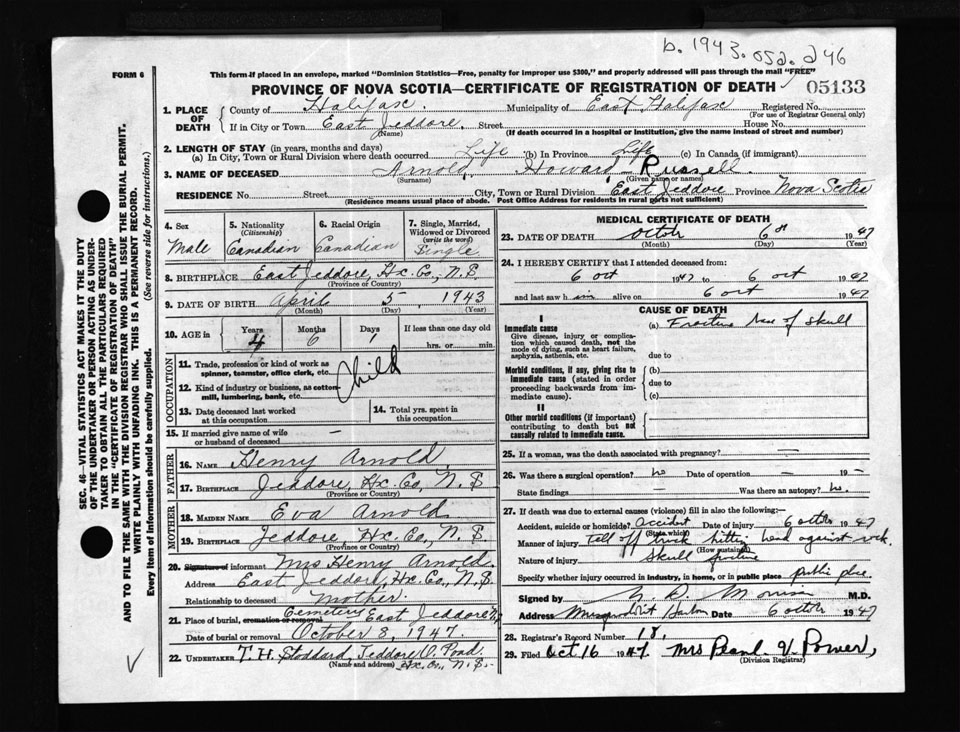 b. 1943. 052. 246
FORM 6
This form if placed in an envelope, marked "Dominion Statistics—Free, penalty for improper use $300," and properly addressed will pass through the mail "FREE"
PROVINCE OF NOVA SCOTIA—CERTIFICATE OF REGISTRATION OF DEATH
05133
1. PLACE OF DEATH
County of Halifax. Municipality of East Halifax Registered No.
(For use of Registrar General only)
If in City or Town East Jeddore, Street House No.
(Name) (If death occurred in a hospital or institution, give the name instead of street and number)
2. LENGTH OF STAY (in years, months and days)
(a) In City, Town or Rural Division where death occurred Life (b) In Province Life (c) In Canada (if immigrant)
3. NAME OF DECEASED Arnold, Howard Russell.
(Surname) (Given name or names)
RESIDENCE No. Street City, Town or Rural Division East Jeddore Province Nova Scotia
(Residence means usual place of abode. Post Office Address for residents in rural parts not sufficient)
4. Sex
Male
5. Nationality
(Citizenship)
Canadian
6. Racial Origin
Canadian
7. Single, Married, Widowed or Divorced
(write the word)
Single
8. BIRTHPLACE East Jeddore, Hx. Co., N.S.
(Province or Country)
9. DATE OF BIRTH April 5, 1943
(Month) (Day) (Year)
10. AGE in
Years Months Days If less than one day old
4 6 1 hrs. or min.
OCCUPATION
11. Trade, profession or kind of work as spinner, teamster, office clerk, etc.
12. Kind of industry or business, as cotton mill, lumbering, bank, etc.
Child
13. Date deceased last worked at this occupation
14. Total yrs. spent in this occupation
15. If married give name of wife or husband of deceased —
FATHER
16. NAME Henry Arnold
17. BIRTHPLACE Jeddore, Hx. Co., N.S
(Province or Country)
MOTHER
18. MAIDEN NAME Eva Arnold
19. BIRTHPLACE Jeddore, Hx. Co., N.S.
(Province or Country)
20. Signature of informant Mrs Henry Arnold.
Address East Jeddore, Hx. Co., N.S.
Relationship to deceased Mother.
21. Place of burial, cremation or removal Cemetery East Jeddore
Date of burial or removal October 8, 1947.
22. UNDERTAKER T.H. Stoddard, Jeddore O. Pond.
(Name and address) Hx. Co., N.S.
MEDICAL CERTIFICATE OF DEATH
23. DATE OF DEATH 6 1947
(Month) (Day) (Year)
24. I HEREBY CERTIFY that I attended deceased from:
6 oct 1947 to 6 oct 1947
and last saw him alive on 6 oct 1947
CAUSE OF DEATH
I
Immediate cause
Give disease, injury or complication which caused death, not the mode of dying, such as heart failure, asphyxia, asthenia, etc.
(a) Fracture Base of Skull
due to
Morbid conditions, if any, giving rise to immediate cause (stated in order proceeding backwards from immediate cause).
(b)
due to
(c)
II
Other morbid conditions (if important) contributing to death but not causally related to immediate cause.
25. If a woman, was the death associated with pregnancy? —
26. Was there a surgical operation? no Date of operation — 19 —
State findings — Was there an autopsy? no.
27. If death was due to external causes (violence) fill in also the following:—
Accident, suicide or homicide? accident Date of injury 6 1947
(State which)
Manner of injury Fell off truck hitting head against rock.
(How sustained)
Nature of injury Skull fracture
Specify whether injury occurred in industry, in home, or in public place public place.
Signed by M.D.
Address Musquodoboit Harbour Date 6 1947
28. Registrar's Record Number 18.
29. Filed Oct 16 1947. Mrs Pearl V. Power,
(Division Registrar)
SEC. 46—VITAL STATISTICS ACT MAKES IT THE DUTY
OF THE UNDERTAKER OR PERSON ACTING AS UNDER-
TAKER TO OBTAIN ALL THE PARTICULARS REQUIRED
IN THE "CERTIFICATE OF REGISTRATION OF DEATH"
AND TO FILE THE SAME WITH THE DIVISION REGISTRAR WHO SHALL ISSUE THE BURIAL PERMIT.
WRITE PLAINLY WITH UNFADING INK. THIS IS A PERMANENT RECORD.
Every item of Information should be carefully supplied. (See reverse side for instructions.)